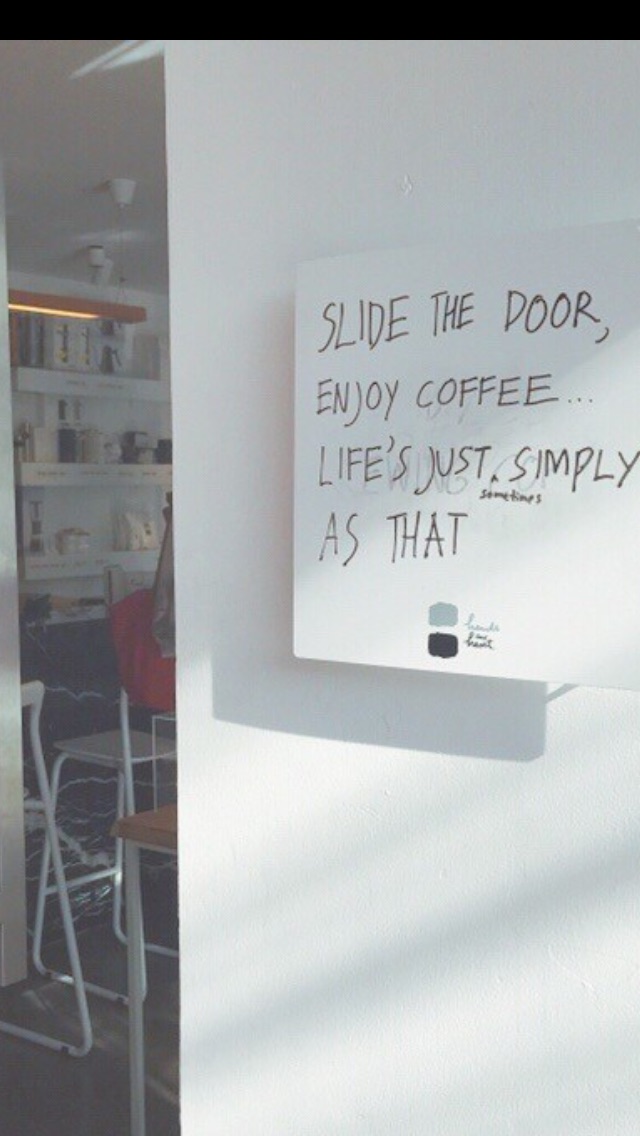 SLIDE THE DOOR,
ENJOY COFFEE...
LIFE'S JUST SIMPLY
sometimes
AS THAT
hands
and
heart